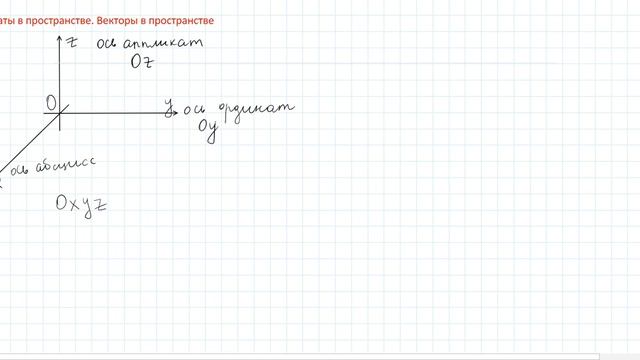 аты в пространстве. Векторы в пространстве
z ось аппликат
Oz
O
y ось ординат
Oy
ось абсцисс
Oxyz